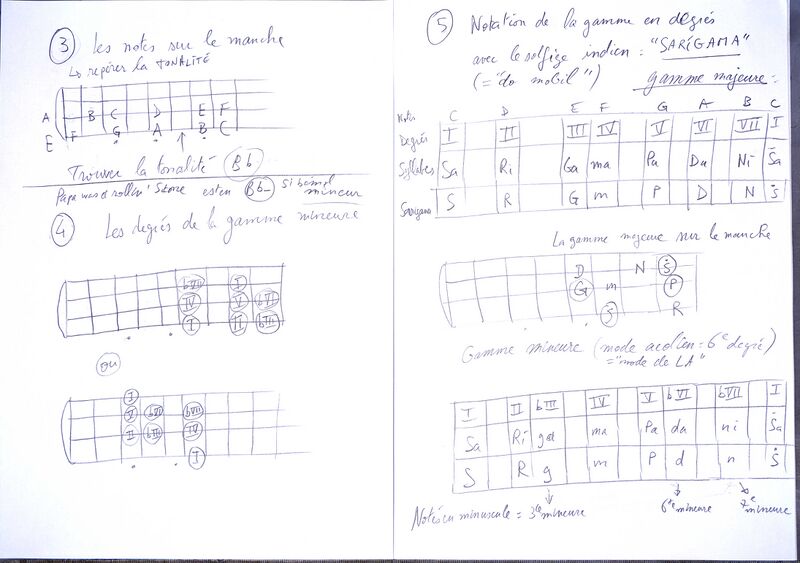 ③ Les notes sur le manche
↳ repérer la TONALITÉ
A B C D E F
E F G A B C
Trouver la tonalité Bb
Papa was a rollin' Stone est en Bb- Si bémol mineur
④ Les degrés de la gamme mineure
bVII I
IV V bVI
I II bIII
ou
I
V bVI bVII
II bIII IV
I
⑤ Notation de la gamme en degrés
avec le solfège indien : "SARIGAMA"
(= "do mobil") gamme majeure :
Notes C D E F G A B C
Degrés I II III IV V VI VII I
Syllabes Sa Ri Ga ma Pa Da Ni Ṡa
Sarigama S R G m P D N Ṡ
La gamme majeure sur le manche
D N Ṡ
G m P
S R
Gamme mineure (mode aeolien = 6e degré)
= "mode de LA"
I II bIII IV V bVI bVII I
Sa Ri ga ma Pa da ni Ṡa
S R g m P d n Ṡ
Notes en minuscule = 3ce mineure 6te mineure 7e mineure